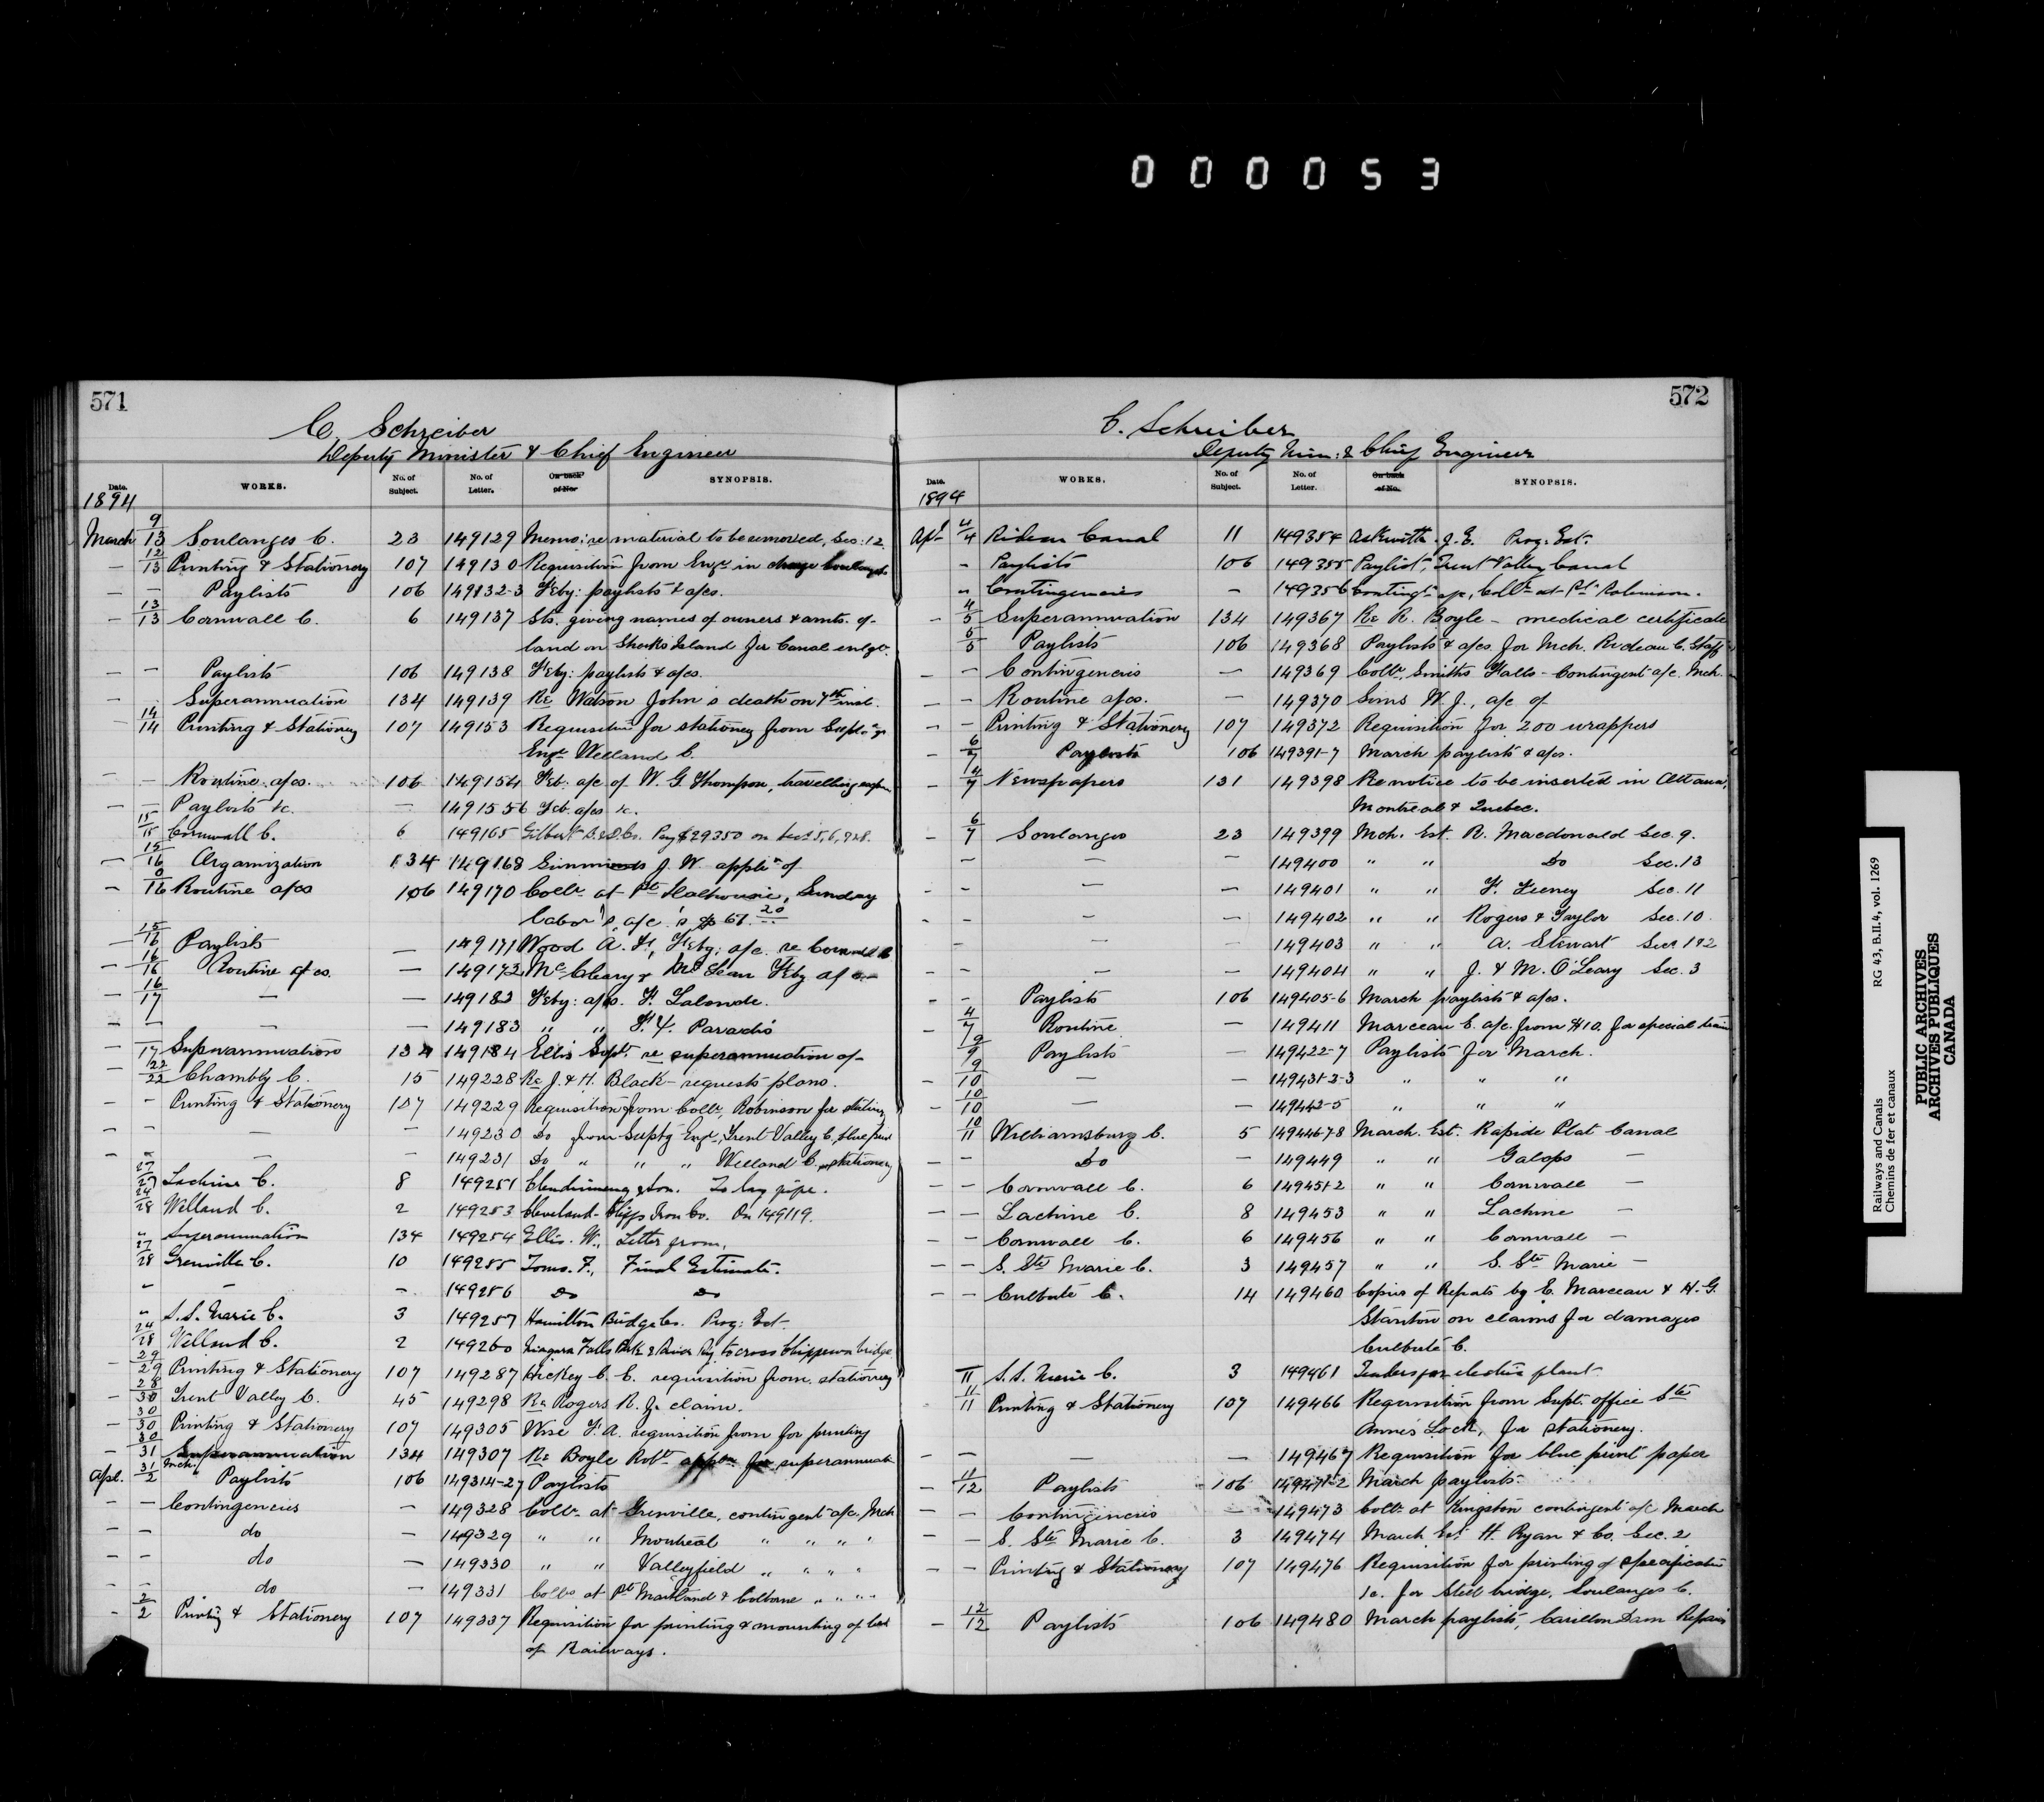 000053
571
C. Schreiber
Deputy Minister & Chief Engineer
Date. WORKS. No. of Subject. No. of Letter. On back of No. SYNOPSIS.
1894
March 9/13 Soulanges C. 23 149129 Memo: re material to be removed, Sec: 12
— 12/13 Printing & Stationery 107 149130 Requisition from Engr in charge Soulanges
— — Paylists 106 149132-3 Feby: paylists & a/cs.
— 13/13 Cornwall C. 6 149137 Sts. giving names of owners & amts. of
land on Sheeks Island for Canal enlgt.
— — Paylists 106 149138 Feby: paylists & a/cs.
— Superannuation 134 149139 Re Watson John's death on 7th inst.
— 14/14 Printing & Stationery 107 149153 Requisition for stationery from Supt-g
Engr Welland C.
— — Routine a/cs. 106 149154 Feb. a/c of W. G. Thompson, travelling
— — Paylists &c. — 149155-56 Feb. a/cs &c.
15/15 Cornwall C. 6 149165 Gilbert Pay $29350 on Secs 5, 6, 7 & 8.
— 15/16 Organization 134 149168 J. W. appln of
— Routine a/cs 106 149170 Collr at Pt Dalhousie, Sunday
Labor's, a/c 's $61. 20
— 15/16 Paylists — 149171 Wood A. F., Feby: a/c. re Cornwall
— 16/16 Routine a/cs. — 149172 McCleary & McLean Feby a/c
— 16/17 — — 149182 Feby: a/cs. F. Lalonde.
— — — — 149183 " " F. Y. Paradis
— 17 Superannuation 134 149184 Ellis Supt. re superannuation of
— 22/22 Chambly C. 15 149228 Re J. & H. Black — requests plans.
— — Printing & Stationery 107 149229 Requisition from Collr, Robinson for
— — — — 149230 Do from Suptg Engr, Trent Valley C, blue print
— " — — 149231 Do " " " Welland C. stationery
27/27 Lachine C. 8 149251 Clendinneng & Son. To lay pipe.
24/28 Welland C. 2 149253 Cleveland-Cliffs Iron Co. On 149119.
" Superannuation 134 149254 Ellis. W., Letter from,
27/28 Grenville C. 10 149255 Toms. F., Final Estimate.
" — — 149256 Do Do
" S.S. Marie C. 3 149257 Hamilton Bridge Co. Prog: Est.
24/28 Welland C. 2 149260 Niagara Falls Park & River Ry to cross Chippewa bridge
— 29/29 Printing & Stationery 107 149287 Hickey C. E. requisition from. stationery
— 28/30 Trent Valley C. 45 149298 Re Rogers R. J. claim.
— 30/30 Printing & Stationery 107 149305 Wise F. A. requisition from for printing
— 30/31 Superannuation 134 149307 Re Boyle Robt appln for superannuatn
Apl. 31 Mch./2 Paylists 106 149314-27 Paylists
— — Contingencies — 149328 Collr at Grenville, contingent a/c, Mch
— — do — 149329 " " Montreal " " " "
— — do — 149330 " " Valleyfield " " " "
— — do — 149331 Collrs at Pt Maitland & Colborne " " " "
— 2/2 Printing & Stationery 107 149337 Requisition for printing & mounting of
of Railways.
572
C. Schreiber
Deputy Min: & Chief Engineer
Date. WORKS. No. of Subject. No. of Letter. On back of No. SYNOPSIS.
1894
Apl 4/4 Rideau Canal 11 149354 Askwith. J. E. Prog: Est.
— Paylists 106 149355 Paylist, Trent Valley Canal
" Contingencies — 149356 Contingt a/c, Collr at Pt Robinson.
— 4/5 Superannuation 134 149367 Re R. Boyle — medical certificate
5/5 Paylists 106 149368 Paylists & a/cs for Mch. Rideau C. Staff
— — Contingencies — 149369 Collr, Smiths Falls — Contingent a/c. Mch.
— — Routine a/cs. — 149370 Sims W. J., a/c of
— — Printing & Stationery 107 149372 Requisition for 200 wrappers
— 6/7 Paylists 106 149391-7 March paylists & a/cs.
— Newspapers 131 149398 Re notice to be inserted in Ottawa,
Montreal & Quebec.
— 6/7 Soulanges 23 149399 Mch. Est. R. Macdonald Sec. 9.
— — — 149400 " " Do Sec. 13
— — — — 149401 " " F. Feeney Sec. 11
— — — — 149402 " " Rogers & Taylor Sec. 10
— — — — 149403 " " A. Stewart Secs 1 & 2
— — — — 149404 " " J. & M. O'Leary Sec. 3
— — Paylists 106 149405-6 March paylists & a/cs.
— 4/7 Routine — 149411 Marceau E. a/c. from for special train
9/9 Paylists — 149422-7 Paylists for March.
— 9/10 — — 149431-2-3 " " "
— 10/10 — — 149442-5 " " "
10/11 Williamsburg C. 5 149446-7-8 March. Est. Rapide Plat Canal
— — Do — 149449 " " Galops —
— — Cornwall C. 6 149451-2 " " Cornwall —
— — Lachine C. 8 149453 " " Lachine —
— — Cornwall C. 6 149456 " " Cornwall —
— — S. Ste Marie C. 3 149457 " " S. Ste Marie —
— — Culbute C. 14 149460 Copies of Reports by E. Marceau & H. G.
Stanton on claims for damages
Culbute C.
11 S.S. Marie C. 3 149461 Tenders for electric plant
11/11 Printing & Stationery 107 149466 Requisition from Supt. office Ste
Anne's Lock, for stationery.
— — — — 149467 Requisition for blue print paper
— 11/12 Paylists 106 149471-2 March paylists.
— — Contingencies — 149473 Collr at Kingston contingent a/c March
— — S. Ste Marie C. 3 149474 March Est. H. Ryan & Co. Sec. 2
— — Printing & Stationery 107 149476 Requisition for printing of specification
&c. for steel bridge, Soulanges C.
— 12/12 Paylists 106 149480 March paylists, Carillon Dam Repairs
Railways and Canals RG 43, B.II.4, vol. 1269
Chemins de fer et canaux
PUBLIC ARCHIVES
ARCHIVES PUBLIQUES
CANADA